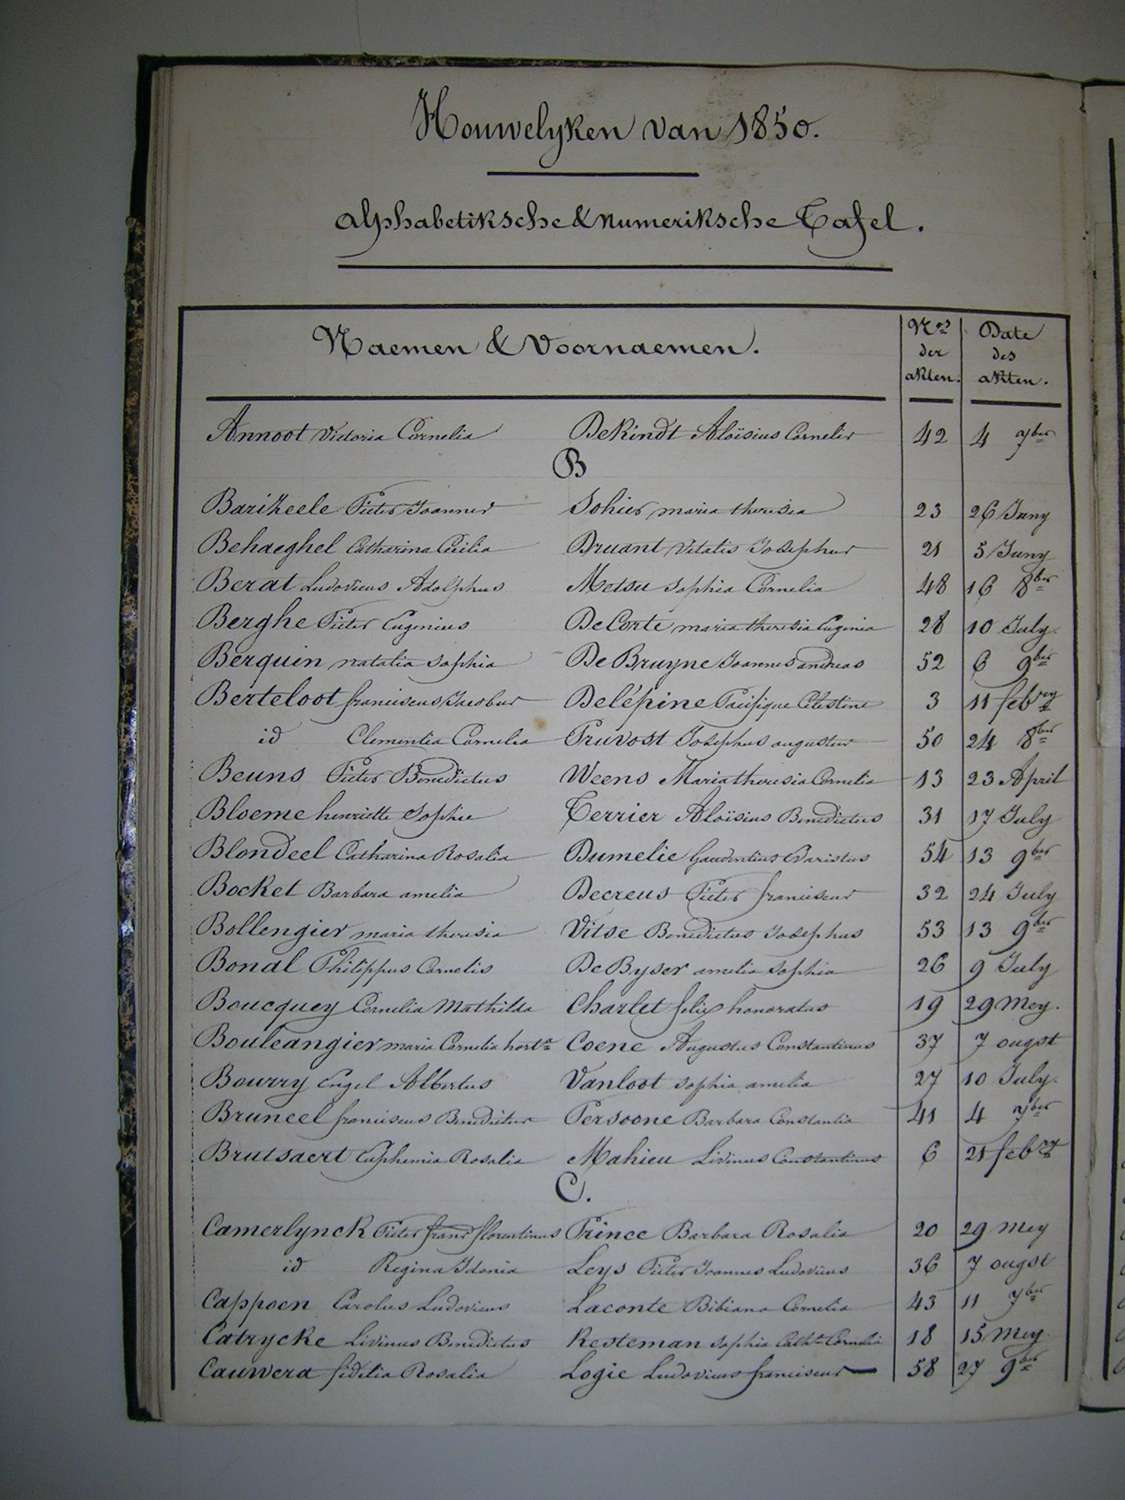 Houwelyken van 1850.
Alphabetiksche & Numeriksche Tafel.
Naemen & Voornaemen. Nos der akten. Date des akten.
Annoot Victoria Cornelia DeKindt Aloïsius Cornelis 42 4 7ber
B
Barizeele Pieter Joannes Sohier maria theresia 23 26 Juny
Behaeghel Catharina Cecilia Bruant Vitalis Josephus 21 5 Juny
Berat Ludovicus Adolphus Metsu Sophia Cornelia 48 16 8ber
Berghe Pieter Eugenius DeCorte maria theresia Eugenia 28 10 July
Berquin natalia sophia DeBruyne Joannes andreas 52 6 9ber
Berteloot franciscus Jacobus Delépine Pacifique Célestine 3 11 febry
id Clementia Cornelia Pruvost Josephus augustus 50 24 8ber
Beuns Pieter Benedictus Weens Maria theresia Cornelia 13 23 April
Bloeme henriette Sophie Terrier Aloïsius Benedictus 31 17 July
Blondeel Catharina Rosalia Dumelie Gaudentius Evaristus 54 13 9ber
Bocket Barbara amelia Decreus Pieter franciscus 32 24 July
Bollengier maria theresia Vitse Benedictus Josephus 53 13 9ber
Bonal Philippus Cornelis DeByser amelia sophia 26 9 July
Boucquey Cornelia Mathilda Charlet felix honoratus 19 29 Mey.
Bouleangier maria Cornelia horta Coene Augustus Constantinus 37 7 ougst
Bourry Engel Albertus Vanloot sophia amelia 27 10 July.
Bruneel franciscus Benedictus Persoone Barbara Constantia 41 4 7ber
Brutsaert Euphemia Rosalia Mahieu Livinus Constantinus 6 21 febry
C.
Camerlynck Pieter frans florentinus Prince Barbara Rosalia 20 29 Mey
id Regina Idonia Leys Pieter Joannes Ludovicus 36 7 ougst
Cappoen Carolus Ludovicus Laconte Bibiana Cornelia 43 11 7ber
Catrycke Livinus Benedictus Kesteman Sophia Catha Cornelia 18 15 Mey
Cauwera fidelia Rosalia Logie Ludovicus franciscus 58 27 9ber